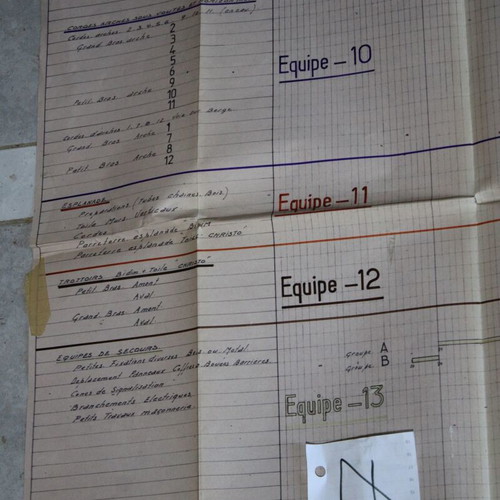 CORDES ARCHES SOUS
Cordes arches 2, 3, 4, 5, 6, 9, 10, 11
Grand Bras Arche 2
3
4
5
6
9
Petit Bras Arche 10
11
Cordes d'arches 1, 7, 8, 12
Grand Bras Arche 1
7
Petit Bras Arche 8
12
Equipe - 10
ESPLANADE
Préparations (Tubes, chaînes, Bois)
Toile Murs Verticaux
Cordes
Parcuterre esplanade
Parcuterre esplanade Toile CHRISTO"
Equipe - 11
TROTTOIRS Bidim + Toile "CHRISTO"
Petit Bras Amont
" Aval
Grand Bras Amont
" Aval
Equipe - 12
EQUIPES DE SECOURS
Petites Fixations diverses Bois ou Métal
Déplacement Panneaux Coffrage Bavard Barrières
Cones de Signalisation
Branchements Electriques
Petits Travaux maçonnerie
Groupe A
Groupe B
Equipe - 13